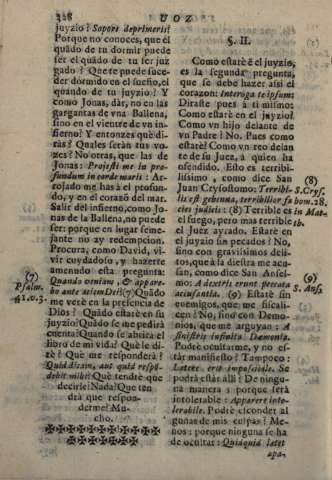 228 UOZ
juyzio? Sopore deprimeris?
Porque no conoces, que el
quãdo de tu dormir puede
ser el quãdo de tu ser juz
gado? Que te puede suce-
der dormido en el sueño, el
quando de tu juyzio? Y
como Jonas, dàr, no en las
gargantas de vna Ballena,
sino en el vientre de vn in-
fierno? Y entonces què di-
ràs? Quales seràn tus vo-
zes? No otras, que las de
Jonas: Projecisti me in pro-
fundum in corde maris: Ar-
rojado me has à el profun-
do, y en el coraçon del mar.
Salir del infierno, como Jo-
nas de la Ballena, no puede
ser: porque en lugar seme-
jante no ay redempcion.
Procura, como David, vi-
vir cuydadoso, y hazerte
amenudo esta pregunta:
Quando veniam, & appare-
bo ante faciem Dei?(7) Quãdo
me verè en la presencia de
Dios? Quãdo estarè en su
juyzio? Quãdo se me pedirà
cuenta? Quando se abrirà el
libro de mi vida? Què le di-
rè? Què me responderà?
Quid dicam, aut quid respõ-
debit mihi? Què tendrè que
decirle? Nada? Que ten
drà que respon-
derme? Mu-
cho.
(7)
Psalm.
41.v.3.
§. II.
Como estarè è el juyzio,
es la segunda pregunta,
que se debe hazer assi el
corazon: Interroga te ipsum:
Diraste pues à ti mismo:
Como estarè en el juyzio?
Como vn hijo delante de
vn Padre? No. Pues como
estarè? Como vn reo delan
te de su Juez, à quien ha
ofendido. Esto es terribi-
lissimo, como dice San
Juan Crysostomo: Terribi-
lis est gehenna, terribilior fa
cies judicis: (8) Terrible es
el fuego, pero mas terrible
el Juez ayrado. Estarè en
el juyzio sin pecados? No,
sino con gravissimos deli-
tos, que à la diestra me acu-
san, como dice San Ansel-
mo: A dextris erunt peccata
accusantia. (9) Estarè sin
enemigos, que me fiscali-
cen? No, sino con Demo-
nios, que me arguyan: A
sinistris infinita Demonia.
Podrè ocultarme, y no es-
târ manifiesto? Tampoco:
Latere erit impossibile. Se
podrà estàr alli? De ningu-
na manera: porque serà
intolerable: Apparere into-
lerabile. Podrè esconder al
gunas de mis culpas? Me-
nos: porque ninguna se ha
de ocultar: Quiaquid latet
apa-
(8)
S. Crys.
hom. 28.
in Mat-
th.
(9)
S. Ansel.